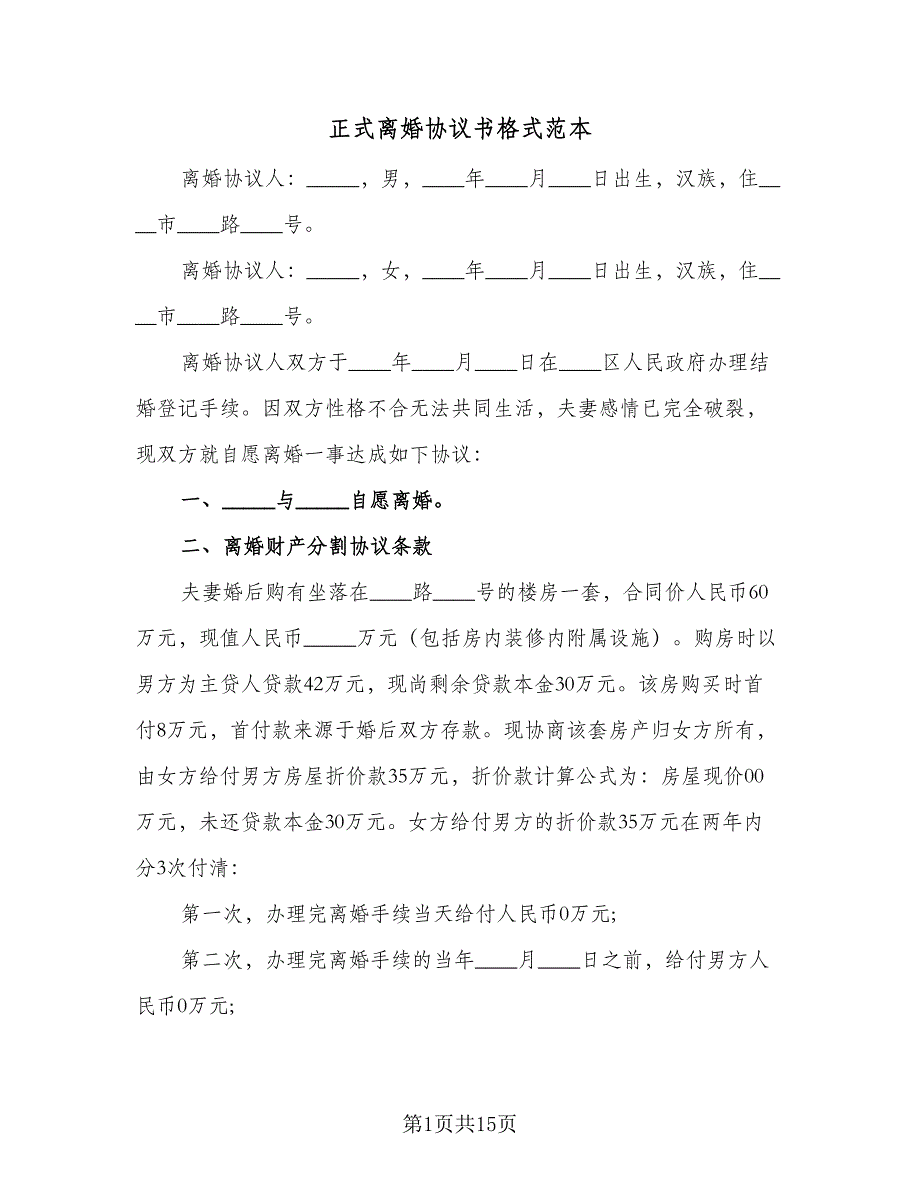 正式离婚协议书格式范本
离婚协议人：_____，男，____年____月____日出生，汉族，住__
__市____路____号。
离婚协议人：_____，女，____年____月____日出生，汉族，住__
__市____路____号。
离婚协议人双方于____年____月____日在____区人民政府办理结
婚登记手续。因双方性格不合无法共同生活，夫妻感情已完全破裂，
现双方就自愿离婚一事达成如下协议：
一、_____与_____自愿离婚。
二、离婚财产分割协议条款
夫妻婚后购有坐落在____路____号的楼房一套，合同价人民币60
万元，现值人民币_____万元（包括房内装修内附属设施）。购房时以
男方为主贷人贷款42万元，现尚剩余贷款本金30万元。该房购买时首
付8万元，首付款来源于婚后双方存款。现协商该套房产归女方所有，
由女方给付男方房屋折价款35万元，折价款计算公式为：房屋现价00
万元，未还贷款本金30万元。女方给付男方的折价款35万元在两年内
分3次付清：
第一次，办理完离婚手续当天给付人民币0万元;
第二次，办理完离婚手续的当年____月____日之前，给付男方人
民币0万元;
第1页共15页